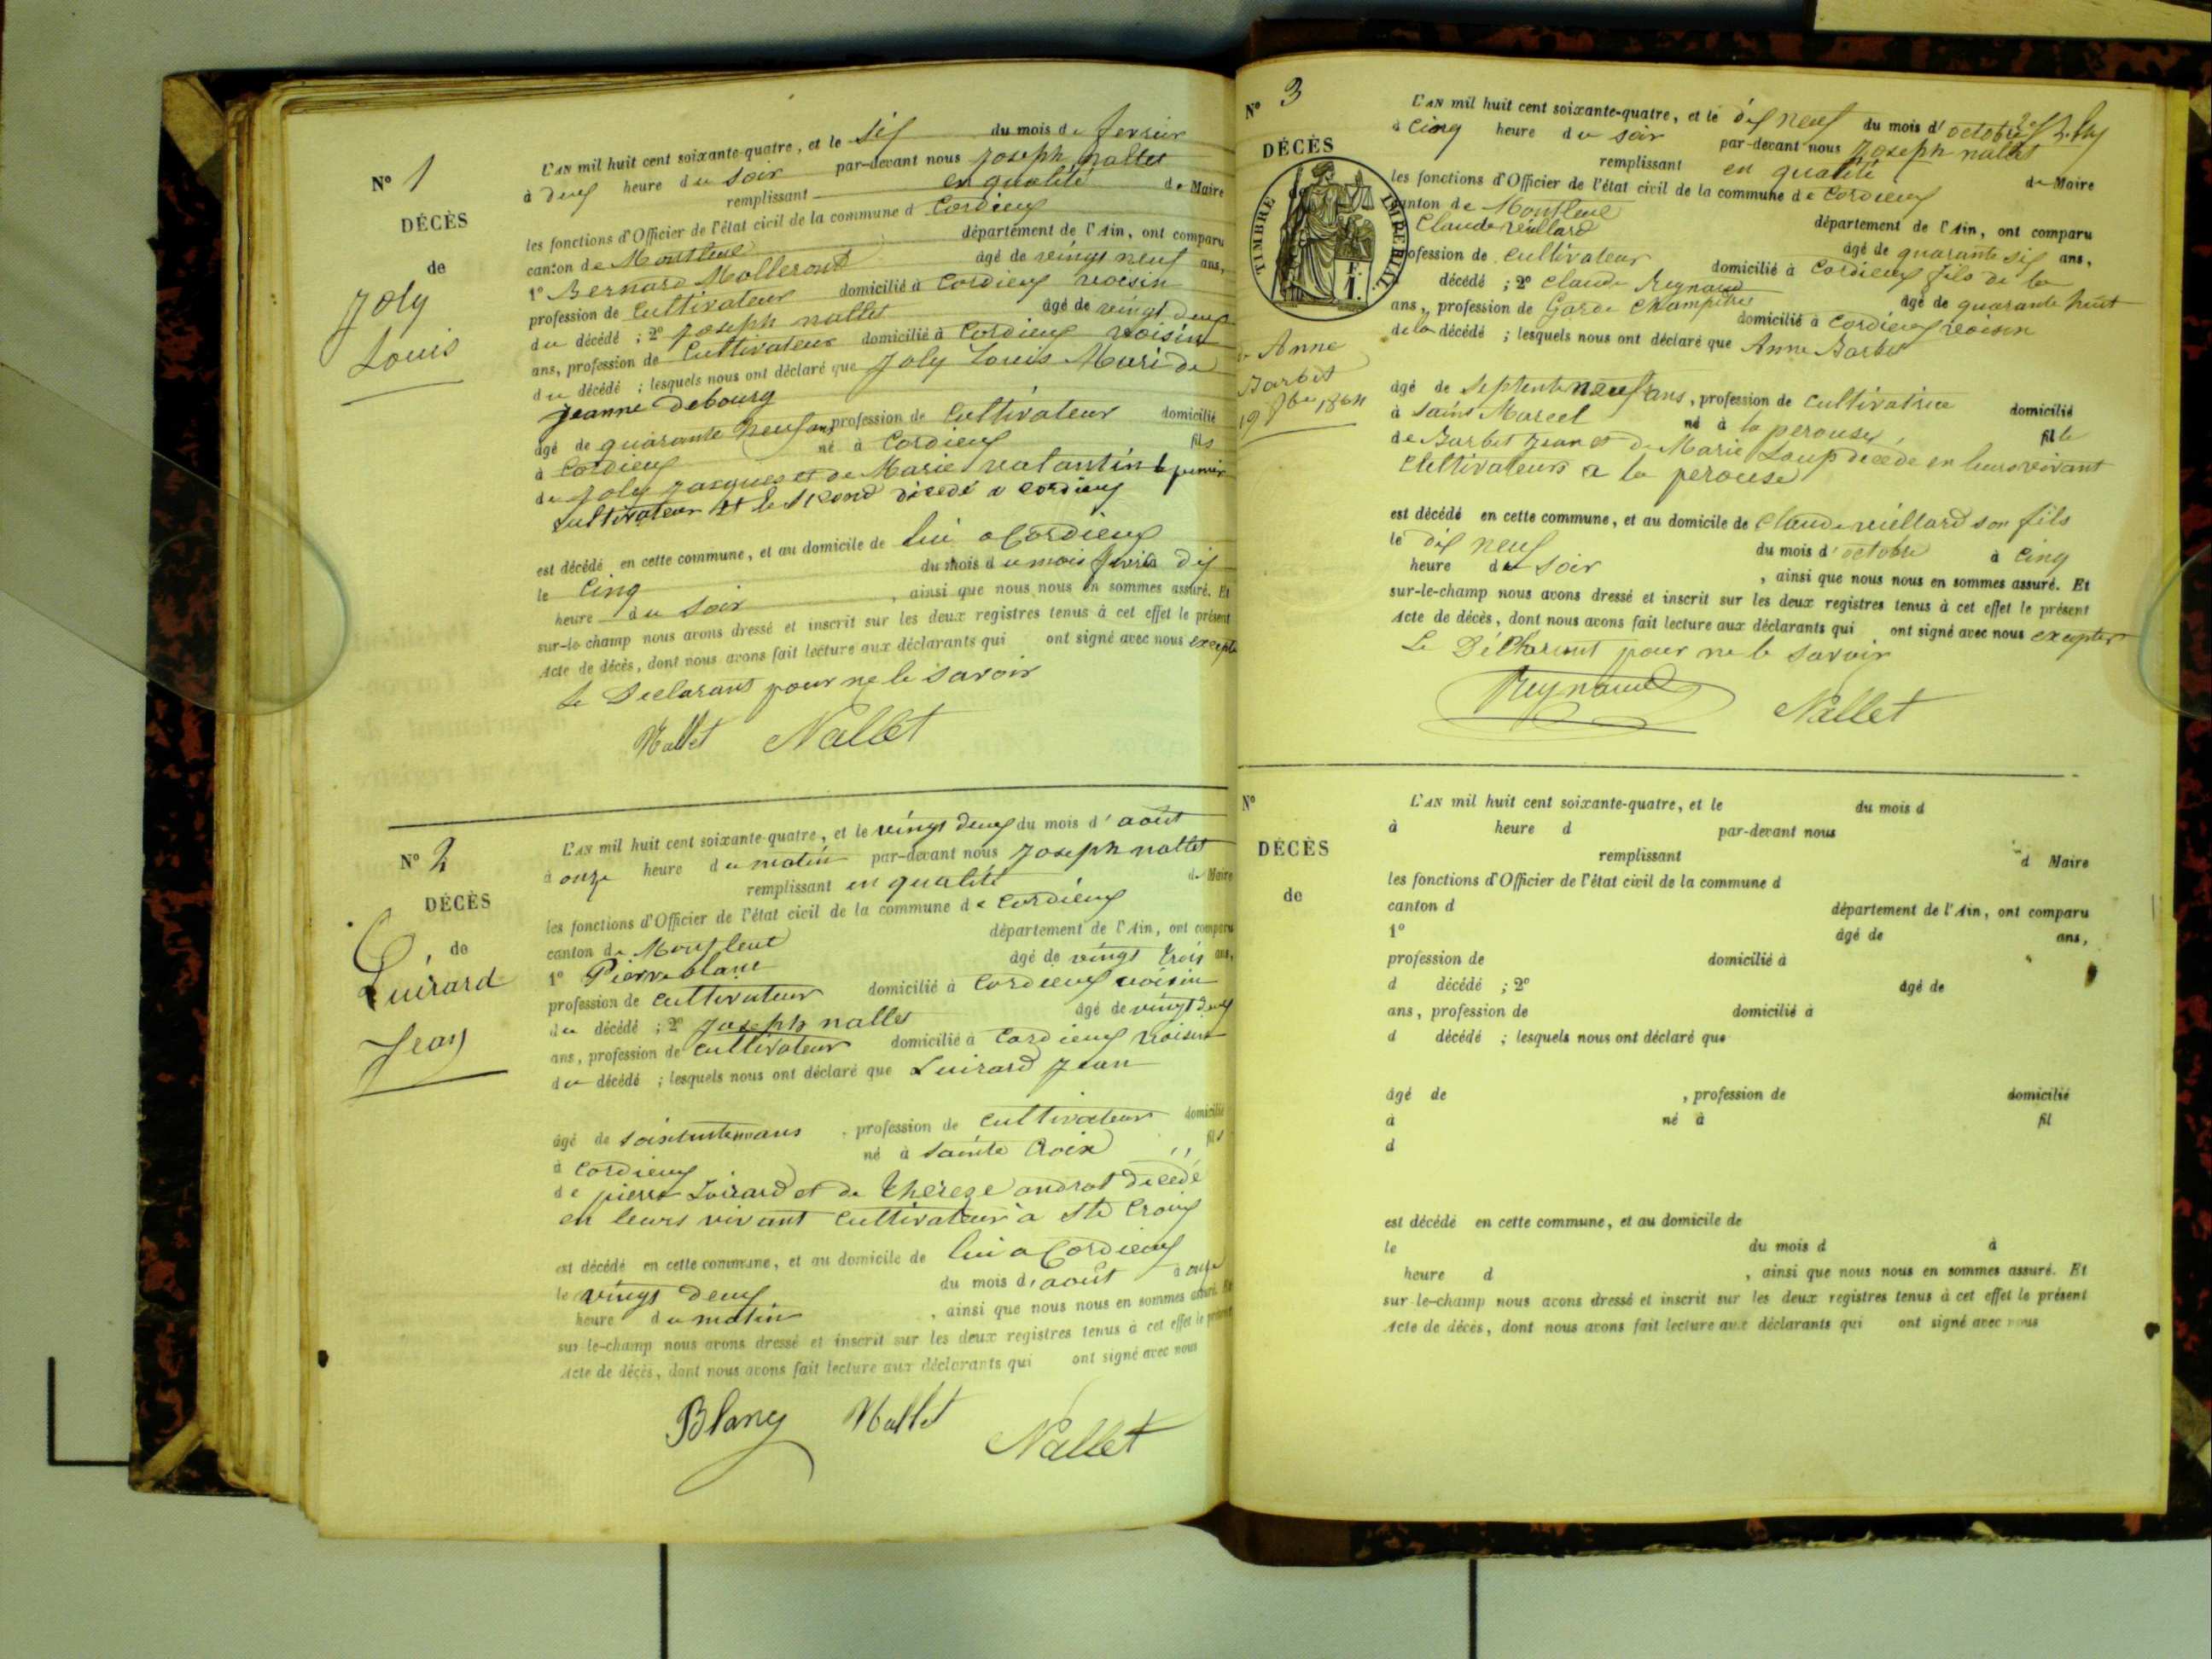 N° 1
DÉCÈS
de
Joly
Louis
L'AN mil huit cent soixante-quatre, et le six du mois de fevrier
à deux heure du soir par-devant nous Joseph nallet
remplissant en qualité de Maire
les fonctions d'Officier de l'état civil de la commune d Cordieux
canton de Montluel département de l'Ain, ont comparu
1° Bernard Molleront âgé de vingt neuf ans,
profession de Cultivateur domicilié à Cordieux voisin
du décédé ; 2° Joseph nallet âgé de vingt deux
ans, profession de Cultivateur domicilié à Cordieux voisin
du décédé ; lesquels nous ont déclaré que Joly Louis Mari de
Jeanne Debourg
âgé de quarante neuf ans profession de Cultivateur domicilié
à Cordieux né à Cordieux fils
de Joly Jacques et de Marie valantin le premier
cultivateur et le second décédé a cordieux
est décédé en cette commune, et au domicile de lui a Cordieux
le Cinq du mois du mois fevrier dix
heure du soir , ainsi que nous nous en sommes assuré. Et
sur-le champ nous avons dressé et inscrit sur les deux registres tenus à cet effet le présent
Acte de décès, dont nous avons fait lecture aux déclarants qui ont signé avec nous excepte
le Déclarant pour ne le savoir
Nallet Nallet
N° 2
DÉCÈS
de
Luirard
Jean
L'AN mil huit cent soixante-quatre, et le vingt deux du mois d'août
à onze heure du matin par-devant nous Joseph nallet
remplissant en qualité de Maire
les fonctions d'Officier de l'état civil de la commune de Cordieux
canton de Montluel département de l'Ain, ont comparu
1° Pierre blanc âgé de vingt trois ans,
profession de cultivateur domicilié à Cordieux voisin
du décédé ; 2° Joseph nallet âgé de vingt deux
ans, profession de cultivateur domicilié à Cordieux voisin
du décédé ; lesquels nous ont déclaré que Luirard Jean
âgé de ans , profession de cultivateur domicilié
à Cordieux né à Sainte Croix fils
de pierre Luirard et de Thereze androt décédé
en leurs vivant cultivateur a Ste Croix
est décédé en cette commune, et au domicile de lui a Cordieux
le vingt deux du mois d'août à onze
heure du matin , ainsi que nous nous en sommes assuré. Et
sur-le-champ nous avons dressé et inscrit sur les deux registres tenus à cet effet le présent
Acte de décès, dont nous avons fait lecture aux déclarants qui ont signé avec nous
Blanc Nallet
Nallet
N° 3
DÉCÈS
TIMBRE IMPERIAL
de Anne
Barbet
19 8bre 1864
L'AN mil huit cent soixante-quatre, et le dix neuf du mois d'octobre
à Cinq heure du soir par-devant nous Joseph nallet
remplissant en qualité de Maire
les fonctions d'Officier de l'état civil de la commune de Cordieux
canton de Montluel département de l'Ain, ont comparu
Claude veillard âgé de quarante six ans,
profession de cultivateur domicilié à Cordieux fils de la
décédé ; 2° Claude Reynaud âgé de quarante huit
ans, profession de Garde Champêtre domicilié à Cordieux voisin
de la décédé ; lesquels nous ont déclaré que Anne Barbet
âgé de septente neuf ans, profession de cultivatrice domicilié
à Saint Marcel né à la perouse fille
de Barbet Jean et de Marie Loup décédé en leurs vivant
Cultivateurs a la perouse
est décédé en cette commune, et au domicile de Claude veillard son fils
le dix neuf du mois d'octobre à Cinq
heure du soir , ainsi que nous nous en sommes assuré. Et
sur-le-champ nous avons dressé et inscrit sur les deux registres tenus à cet effet le présent
Acte de décès, dont nous avons fait lecture aux déclarants qui ont signé avec nous excepter
Le Déclarant pour ne le savoir
Reynaud Nallet
N°
DÉCÈS
de
L'AN mil huit cent soixante-quatre, et le du mois d
à heure d par-devant nous
remplissant d Maire
les fonctions d'Officier de l'état civil de la commune d
canton d département de l'Ain, ont comparu
1° âgé de ans,
profession de domicilié à
d décédé ; 2° âgé de
ans, profession de domicilié à
d décédé ; lesquels nous ont déclaré que
âgé de , profession de domicilié
à né à fil
d
est décédé en cette commune, et au domicile de
le du mois d à
heure d , ainsi que nous nous en sommes assuré. Et
sur-le-champ nous avons dressé et inscrit sur les deux registres tenus à cet effet le présent
Acte de décès, dont nous avons fait lecture aux déclarants qui ont signé avec nous